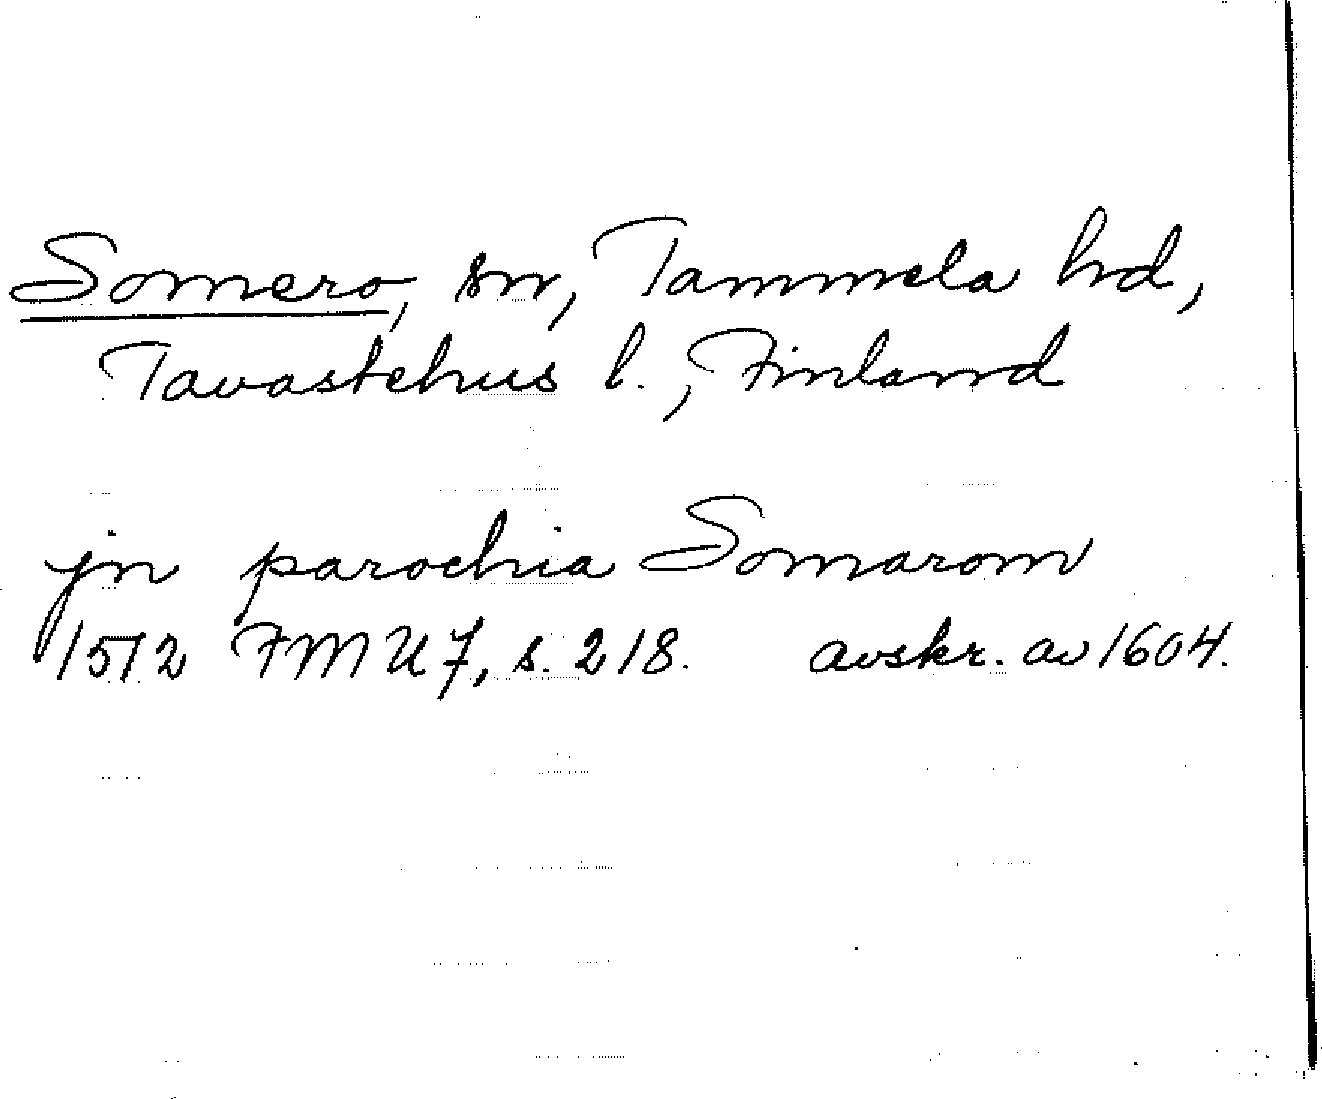 Somero, sn, Tammela hd,
Tavastehus l., Finland
jn parochia Somarom
1512 FMU 7, s. 218. avskr. av 1604.